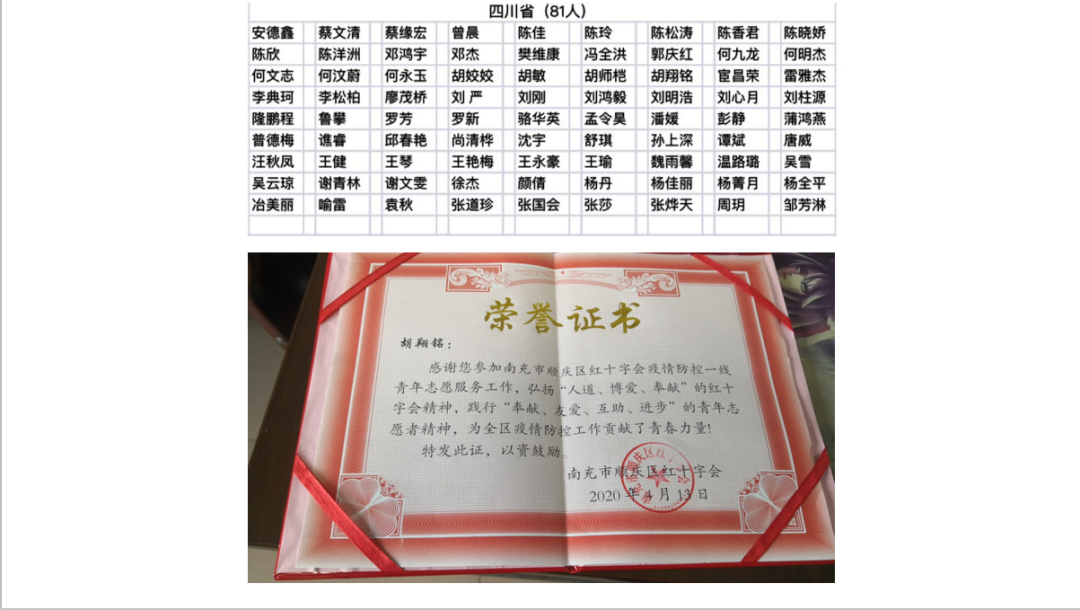 四川省（81人）
安德鑫 蔡文清 蔡缘宏 曾晨 陈佳 陈玲 陈松涛 陈香君 陈晓娇
陈欣 陈洋洲 邓鸿宇 邓杰 樊维康 冯全洪 郭庆红 何九龙 何明杰
何文志 何汶蔚 何永玉 胡姣姣 胡敏 胡师桤 胡翔铭 宦昌荣 雷雅杰
李典珂 李松柏 廖茂桥 刘 严 刘刚 刘鸿毅 刘明浩 刘心月 刘柱源
隆鹏程 鲁攀 罗芳 罗新 骆华英 孟令昊 潘媛 彭静 蒲鸿燕
普德梅 谯睿 邱春艳 尚清桦 沈宇 舒琪 孙上深 谭斌 唐威
汪秋凤 王健 王琴 王艳梅 王永豪 王瑜 魏雨馨 温路璐 吴雪
吴云琼 谢青林 谢文雯 徐杰 颜倩 杨丹 杨佳丽 杨菁月 杨全平
冶美丽 喻雷 袁秋 张道珍 张国会 张莎 张烨天 周玥 邹芳淋
荣誉证书
胡翔铭：
感谢您参加南充市顺庆区红十字会疫情防控一线
青年志愿服务工作，弘扬“人道、博爱、奉献”的红十
字会精神，践行“奉献、友爱、互助、进步”的青年志
愿者精神，为全区疫情防控工作贡献了青春力量!
特发此证，以资鼓励。
南充市顺庆区红十字会
2020年4月13日